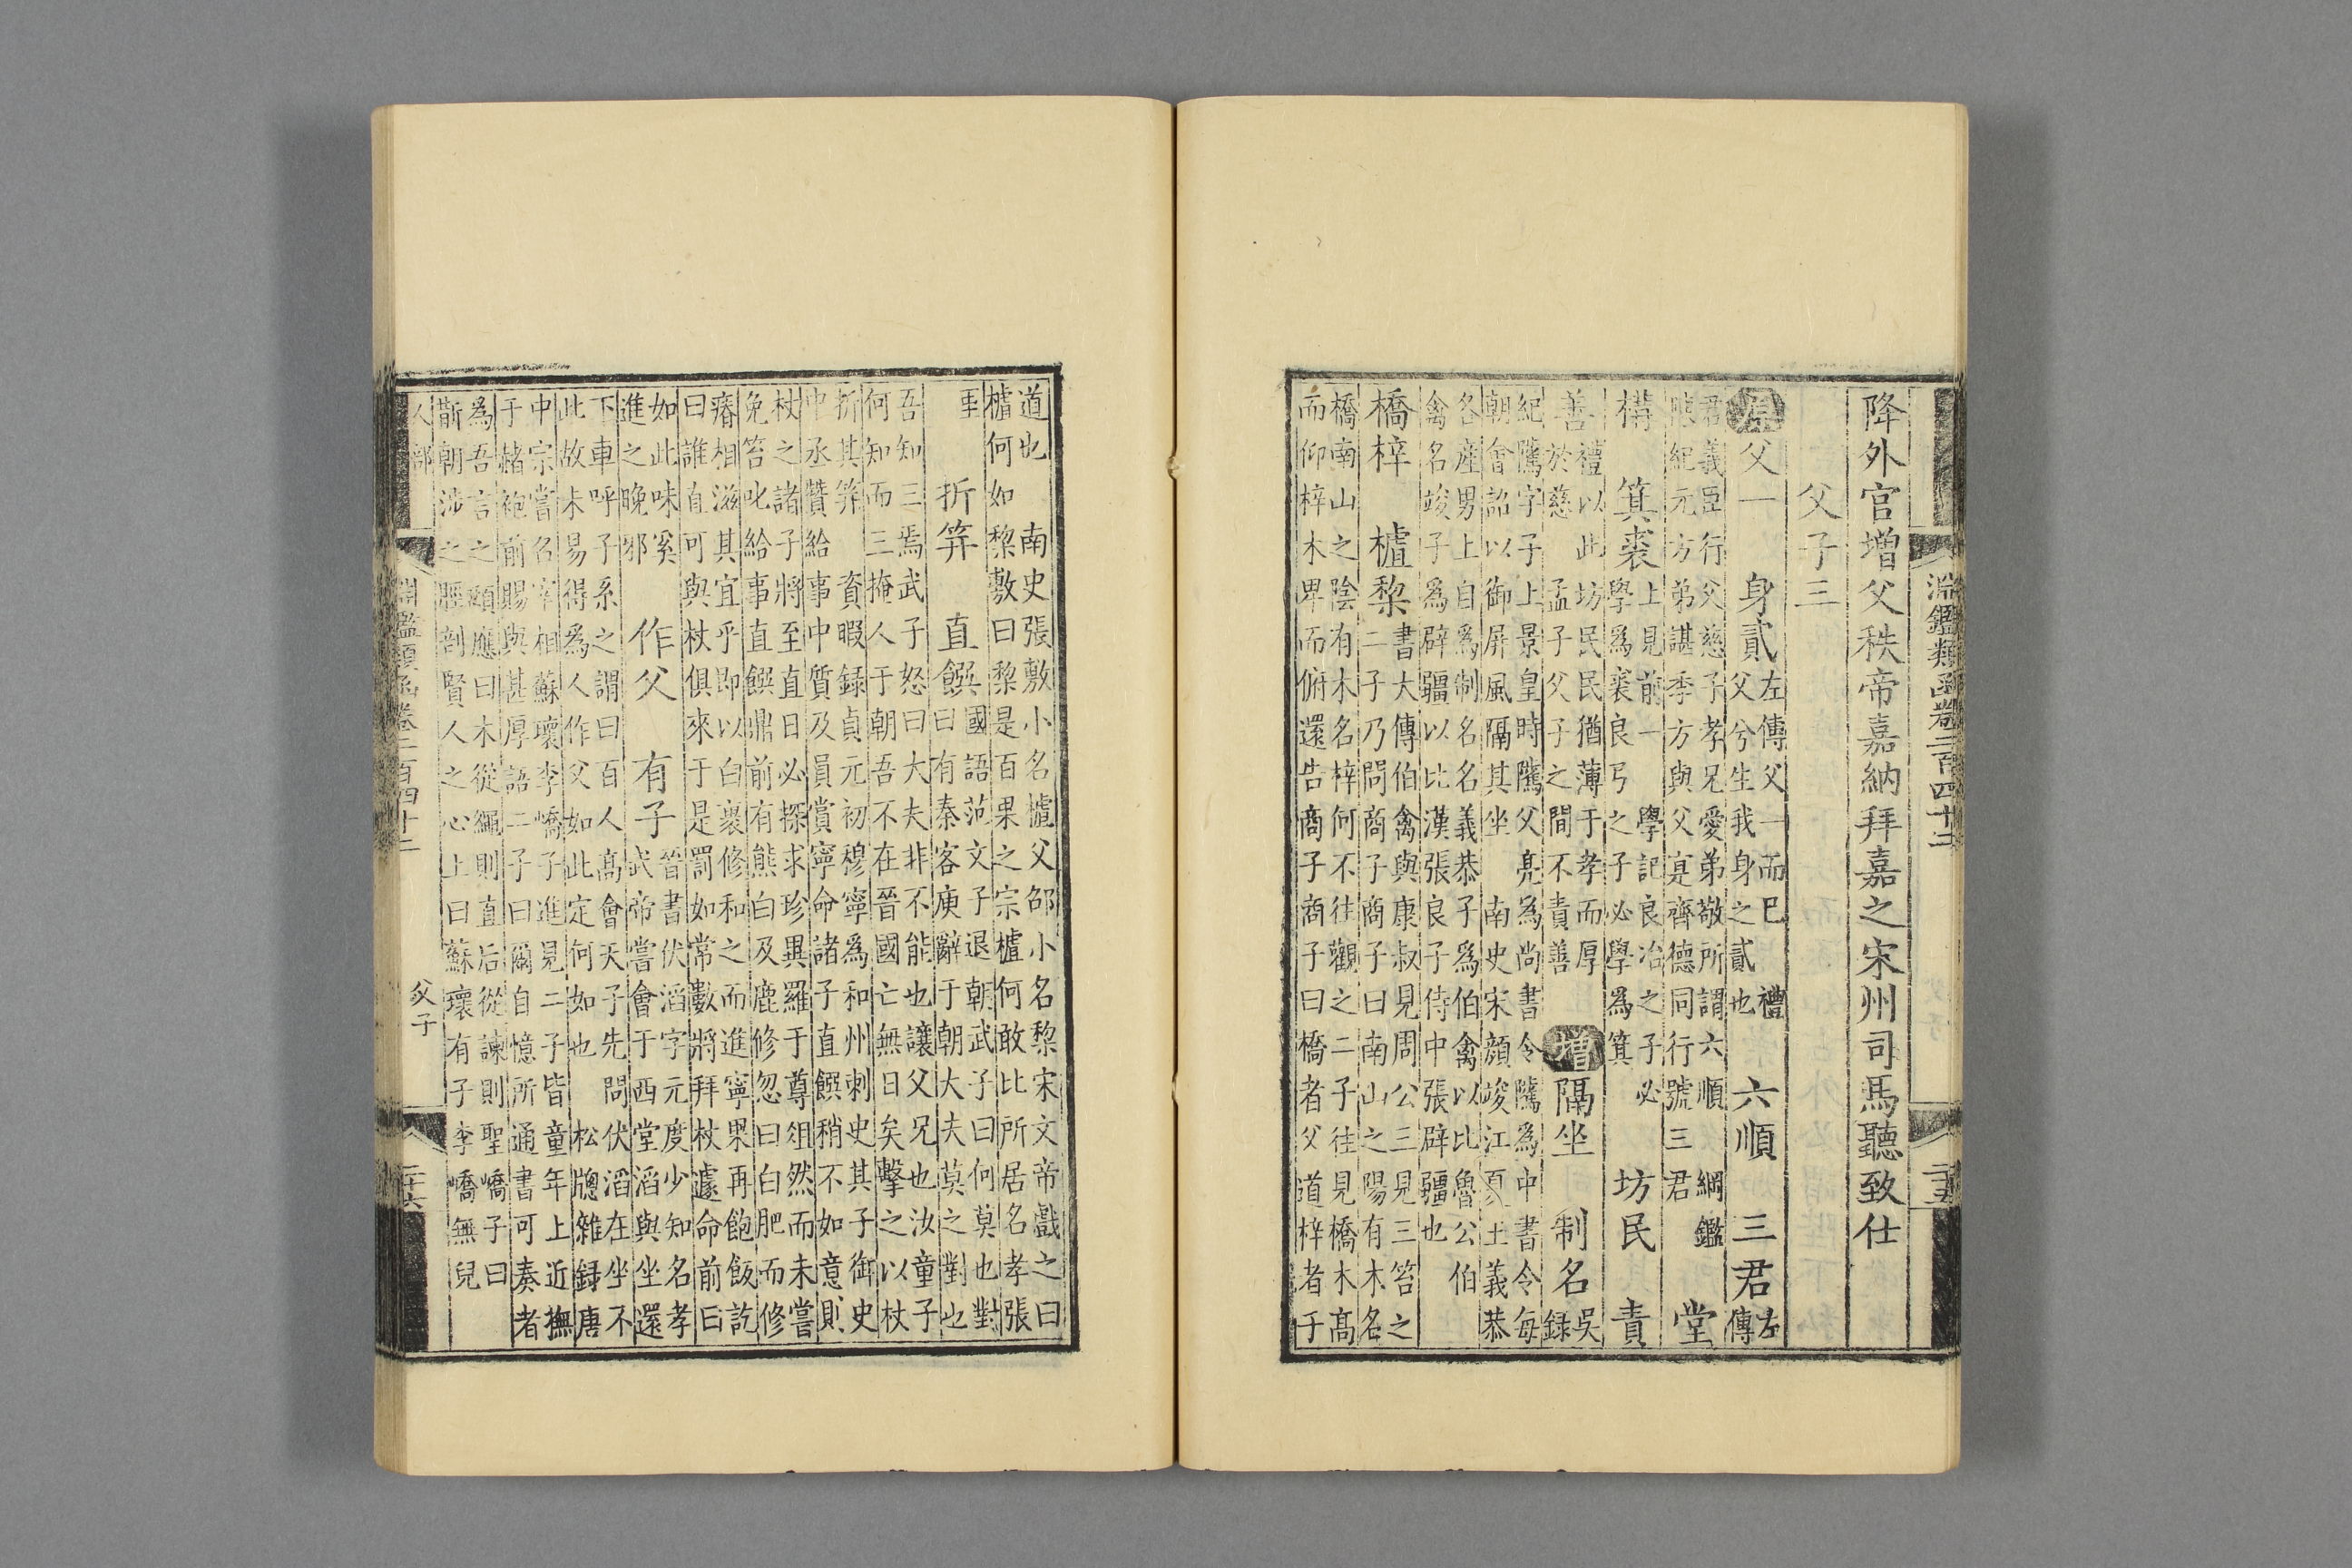 淵鑑類函卷二百四十二
二十五
降外宫增父秩帝嘉納拜嘉之宋州司馬聽致仕
父子三
原父一 身貳
左傳父一而巳 禮
父兮生我身之貳也
六順 三君
左
傳
君義臣行父慈子孝兄愛弟敬所謂六順 綱鑑
陳紀元方弟諶季方與父寔齊德同行號三君
堂
構 箕裘
上見前一 學記良冶之子必
學爲裘良弓之子必學爲箕
坊民 責
善
禮以此坊民民猶薄于孝而厚
於慈 孟子父子之間不責善
增隔坐 制名
吳
録
紀隲字子上景皇時隲父亮爲尚書令隲爲中書令每
朝會詔以御屏風隔其坐 南史宋顔竣江夏王義恭
各產男上自爲制名名義恭子爲伯禽以比魯公伯
禽名竣子爲辟疆以比漢張良子侍中張辟疆也
橋梓 櫨棃
書大傳伯禽與康叔見周公三見三笞之
二子乃問商子商子曰南山之陽有木名
橋南山之陰有木名梓何不往觀之二子往見橋木高
而仰梓木卑而俯還告商子商子曰橋者父道梓者子
道也 南史張敷小名櫨父邵小名棃宋文帝戲之曰
櫨何如棃敷曰棃是百果之宗櫨何敢比所居名孝張
里
折筓 直饌
國語范文子退朝武子曰何莫也對
曰有秦客庾辭于朝大夫莫之對也
吾知三焉武子怒曰大夫非不能也讓父兄也汝童子
何知而三掩人于朝吾不在晉國亡無日矣擊之以杖
折其筓 資暇録貞元初穆寧爲和州刺史其子御史
中丞贊給事中質及員賞寧命諸子直饌稍不如意則
杖之諸子將至直日必探求珍異羅于尊俎然而未嘗
免笞叱給事直饌鼎前有熊白及鹿修忽曰白肥而修
瘠相滋其宜乎即以白裹修和之而進寧果再飽飯訖
曰誰直可與杖俱來于是罰如常數將拜杖遽命前曰
如此味奚
進之晚邪
作父 有子
晉書伏滔字元度少知名孝
武帝嘗會于西堂滔與坐還
下車呼子系之謂曰百人高會天子先問伏滔在坐不
此故未易得爲人作父如此定何如也 松牕雜録唐
中宗嘗召宰相蘇壞李嶠子進見二子皆童年上近撫
于赭袍前賜與甚厚語二子曰爾自憶所通書可奏者
爲吾言之頲應曰木從繩則直后從諫則聖嶠子曰
斮朝涉之脛剖賢人之心上曰蘇瓌有子李嶠無兒
人部
淵鑑類函卷二百四十二
父子
二十六